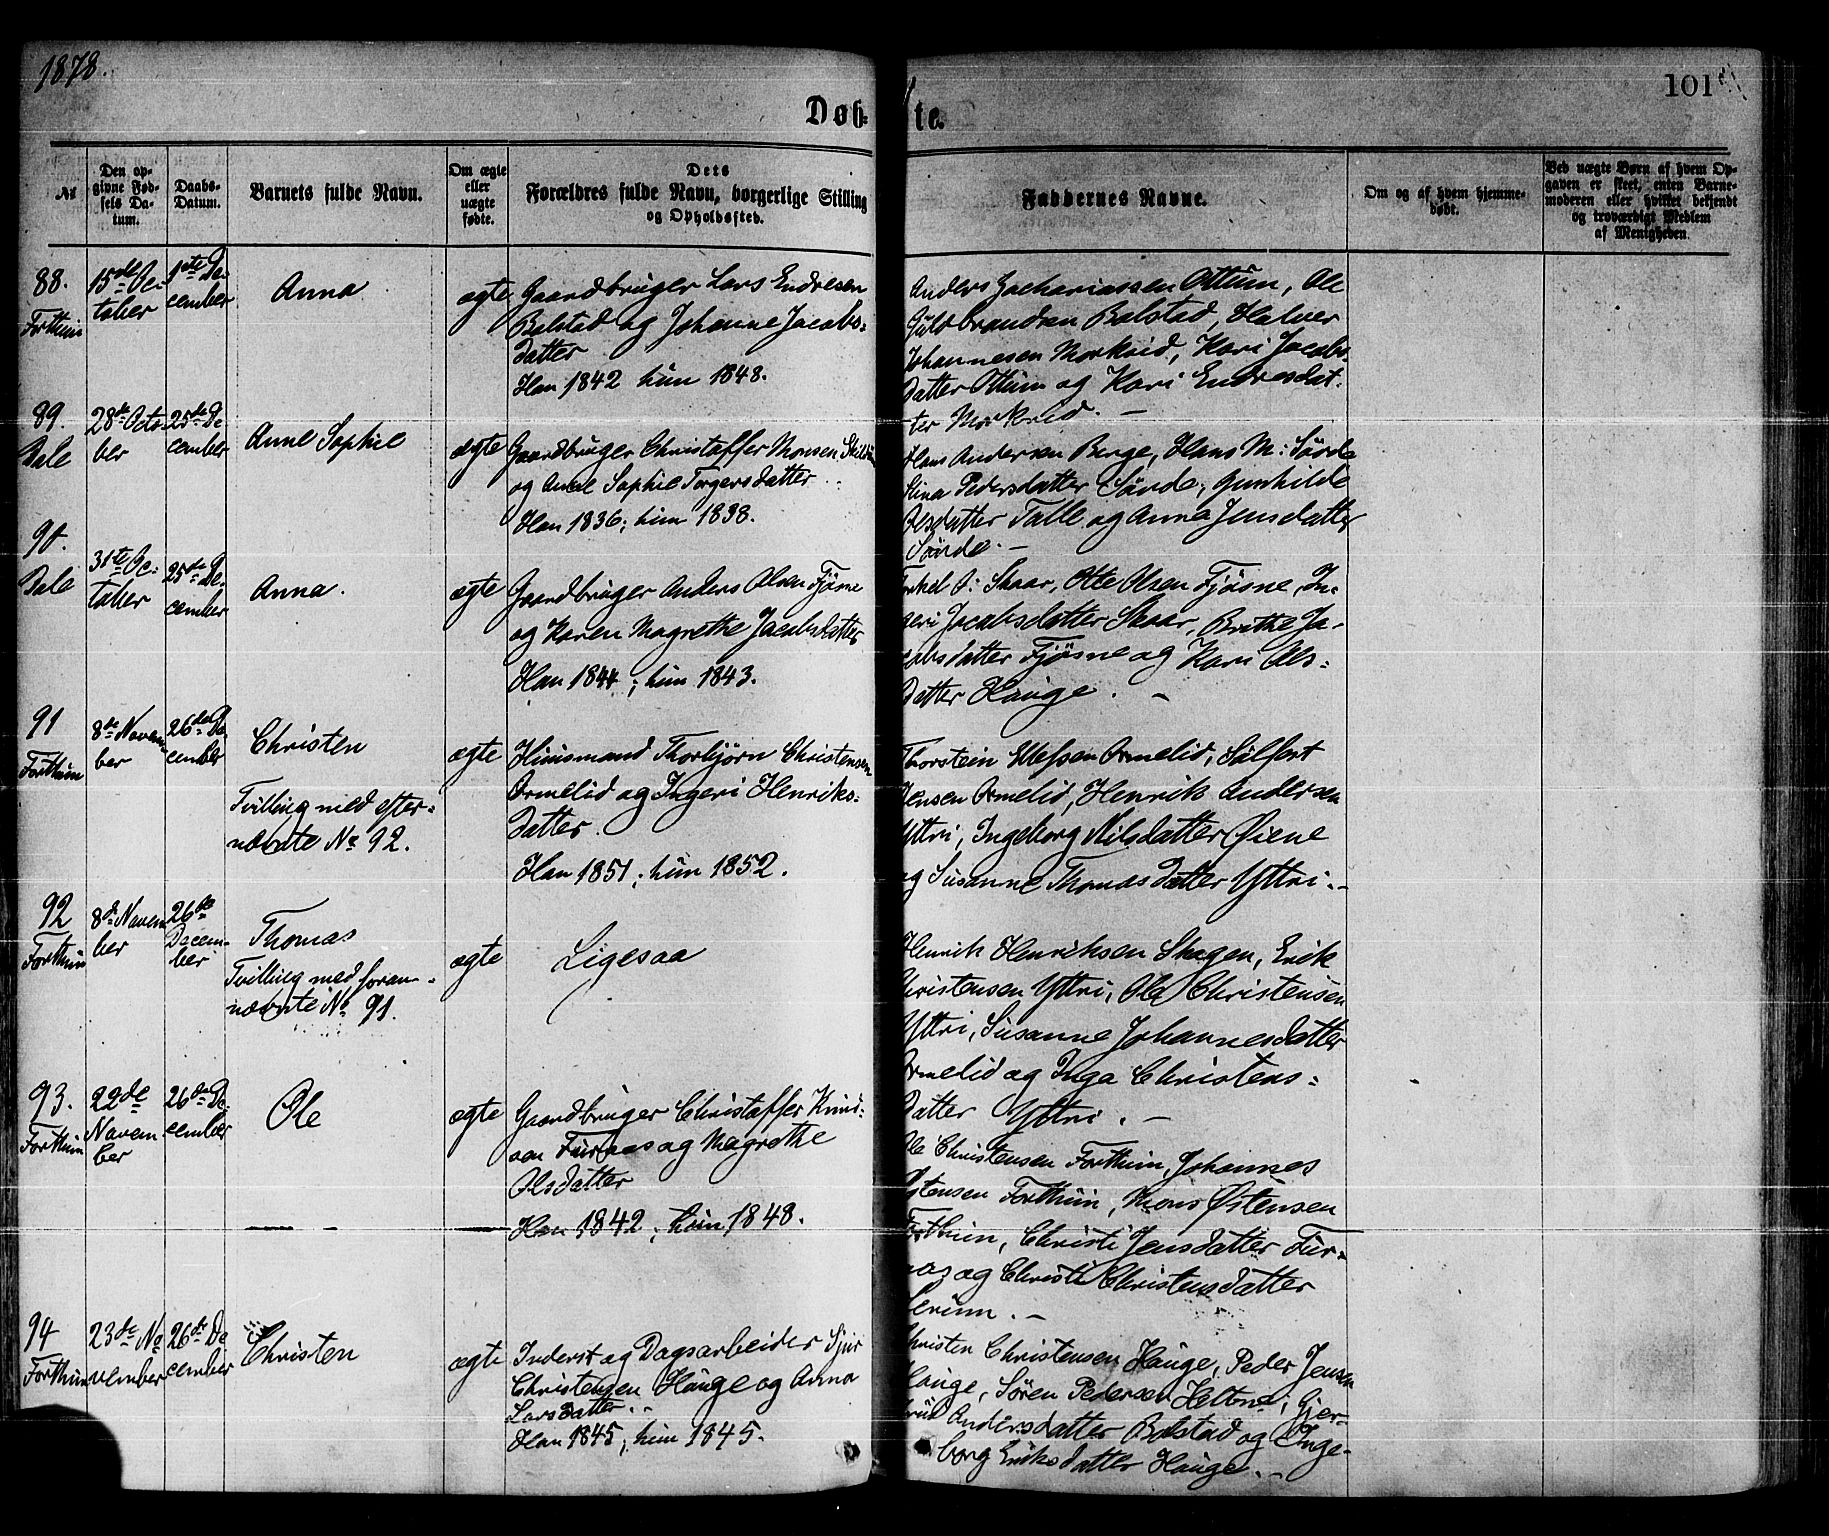 1878.
101
Døbte.
№
Den opgivne Fødsels Datum.
Daabs-Datum.
Barnets fulde Navn.
Om ægte eller uægte fødte.
Dets Forældres fulde Navn, borgerlige Stilling og Opholdssted.
Faddernes Navne.
Om og af hvem hjemmedøbt.
Ved uægte Børn af hvem Opgaven er skeet, enten Barnemoderen eller hvilket bekjendt og troværdigt Medlem af Menigheden.
88.
Forthun
15de Oc-
tober
1ste De-
cember
Anna
ægte
Gaardbruger Lars Endresen
Bolstad og Johanne Jacobs-
datter
Han 1842 hun 1848.
Anders Zachariassen Ottum, Ole
Guldbrandsen Bolstad, Halvor
Johannesen Morkrid, Kari Jacobs-
datter Ottum og Kari Endresdat-
ter Morkrid. –
89.
Dale
28de Octo-
ber
25de De-
cember
Anne Sophie
ægte
Gaardbruger Christoffer Monsen
og Anne Sophie Torgersdatter
Han 1836; hun 1838.
Hans Andersen Berge, Hans M: Sørde
Stina Pedersdatter Sørde, Gunhilde
Olsdatter Talle og Anna Jensdatter
Sørde. –
90.
Dale
31te Oc-
tober
25de De-
cember
Anna.
ægte
Gaardbruger Anders Olsen Fjøsne
og Karen Magrethe Jacobsdatter
Han 1844; hun 1843.
O: Skaar, Otte Olsen Fjøsne, In-
geri Jacobsdatter Skaar, Brithe Ja-
cobsdatter Fjøsne og Kari Ols-
datter Hauge. –
91
Forthun
8de Novem-
ber
26de De-
cember
Christen
Tvilling med efter-
nævnte No 92.
ægte
Huusmand Thorbjørn Christensen
Ormelid og Ingeri Henriks-
datter.
Han 1851; hun 1852.
Thorstein Ormelid, Sulfest
Jensen Ormelid, Henrik Andersen
Yttri, Ingeborg Nilsdatter Øiene
og Susanne Thomasdatter Yttri. –
92
Forthun
8de Novem-
ber
26de
Decem-
ber
Thomas
Tvilling med foran-
nævnte No 91.
ægte
Ligesaa
Henrik Henriksen Skagen, Erik
Christensen Yttri, Ole Christensen
Yttri, Susanne Johannesdatter
Ormelid og Inga Christens-
datter Yttri. –
93.
Forthun
22de
Novem-
ber
26de De-
cember
Ole
ægte
Gaardbruger Christoffer Knud-
sen Furaas og Magrethe
Olsdatter
Han 1842; hun 1848.
Ole Christensen Forthun, Johannes
Østensen Forthun, Mons Østensen
Forthun, Christi Jensdatter Fur-
aas og Christi Christensdatter
94
Forthun
23de No-
vember
26de De-
cember
Christen
ægte
Inderst og Dagsarbeider Sjur
Christensen Hauge og Anna
Larsdatter.
Han 1845; hun 1845.
Christen Christensen Hauge, Peder Jensen
Hauge, Søren Pedersen Heltne, Gjer-
trud Andersdatter Bolstad og Inge-
borg Eriksdatter Hauge. –